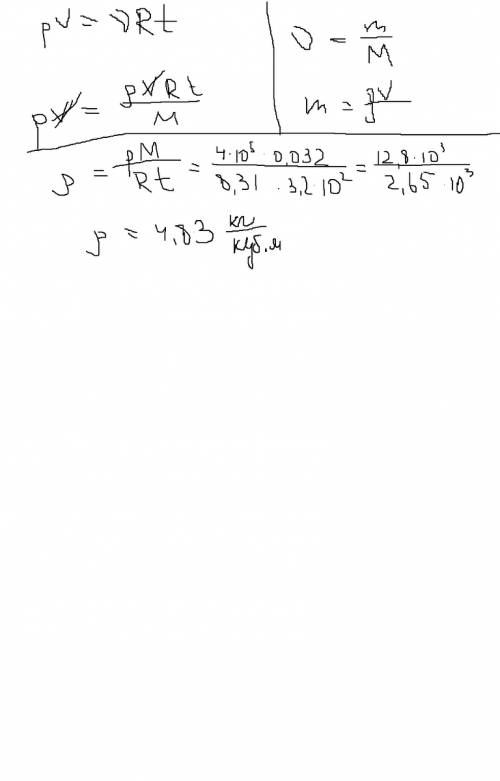 pV = νRt
ν = m/M
m = ρV
pV = ρVRt/M
ρ = pM/Rt = 4·10⁵ · 0,032 / 8,31 · 3,2·10² = 12,8·10³ / 2,65·10³
ρ = 4,83 кг/куб.м